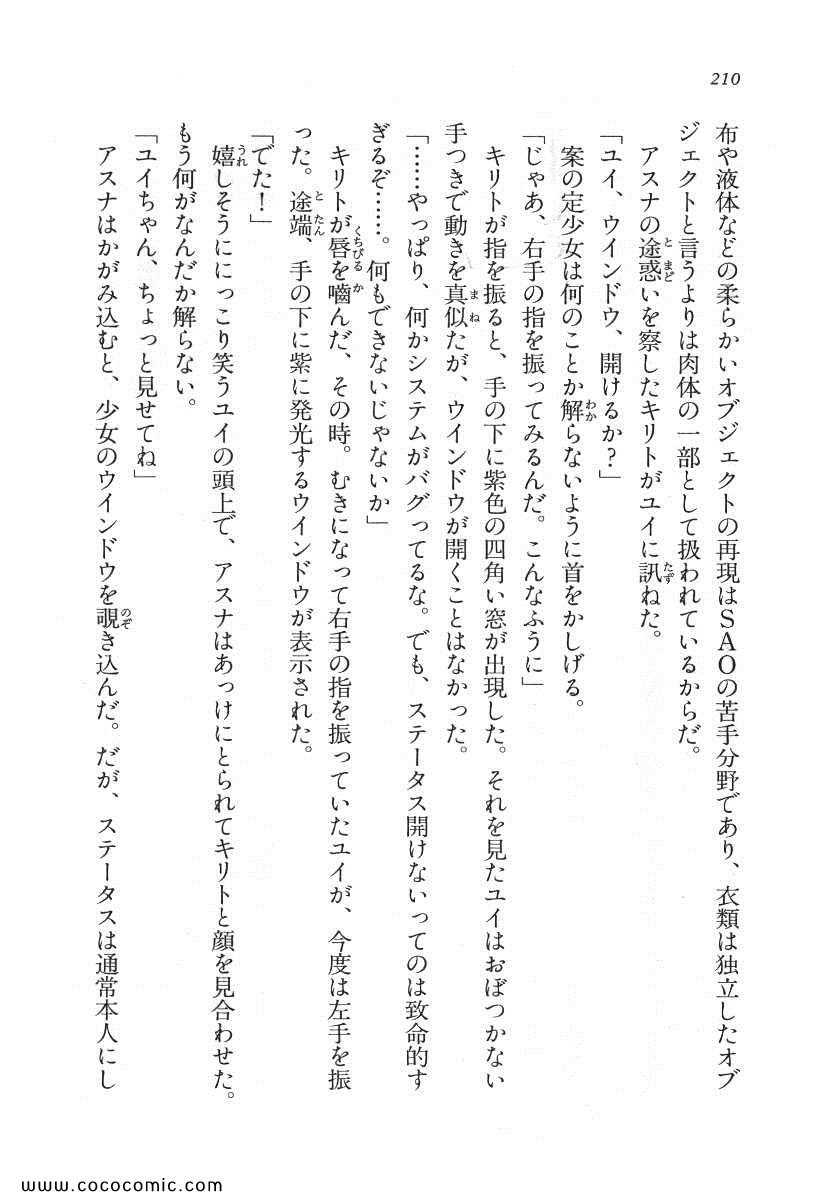 210
布や液体などの柔らかいオブジェクトの再現はＳＡＯの苦手分野であり、衣類は独立したオブ
ジェクトと言うよりは肉体の一部として扱われているからだ。
アスナの途惑いを察したキリトがユイに訊ねた。
「ユイ、ウインドウ、開けるか？」
案の定少女は何のことか解らないように首をかしげる。
「じゃあ、右手の指を振ってみるんだ。こんなふうに」
キリトが指を振ると、手の下に紫色の四角い窓が出現した。それを見たユイはおぼつかない
手つきで動きを真似たが、ウインドウが開くことはなかった。
「……やっぱり、何かシステムがバグってるな。でも、ステータス開けないってのは致命的す
ぎるぞ……。何もできないじゃないか」
キリトが唇を嚙んだ、その時。むきになって右手の指を振っていたユイが、今度は左手を振
った。途端、手の下に紫に発光するウインドウが表示された。
「でた！」
嬉しそうににっこり笑うユイの頭上で、アスナはあっけにとられてキリトと顔を見合わせた。
もう何がなんだか解らない。
「ユイちゃん、ちょっと見せてね」
アスナはかがみ込むと、少女のウインドウを覗き込んだ。だが、ステータスは通常本人にし
www.cococomic.com